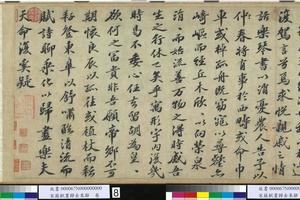 復駕言兮焉求悅親戚之情
話樂琴書以消憂農人告予以
春將有事於西疇或命巾
車或棹孤舟既窈窕以尋壑亦
崎嶇而經丘木欣欣以向榮泉
涓涓而始流善萬物之得時感吾
生之行休已矣乎寓形宇內復幾
時曷不委心任去留胡為
欲何之富貴非吾願帝鄉不可
期懷良辰以孤往或植杖而耘
耔登東皋以舒嘯臨清流而
賦詩聊乘化以歸盡樂夫
天命復奚疑
8